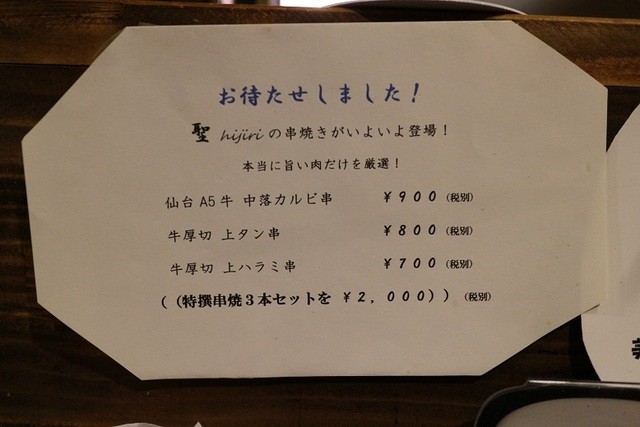 お待たせしました！
聖 hijiri の串焼きがいよいよ登場！
本当に旨い肉だけを厳選！
仙台 A5牛 中落カルビ串 ￥900（税別）
牛厚切 上タン串 ￥800（税別）
牛厚切 上ハラミ串 ￥700（税別）
（（特撰串焼３本セットを ￥２，０００））（税別）